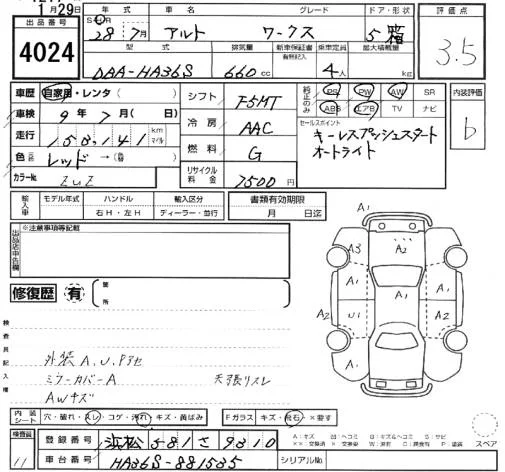 29日
出品番号
4024
年式 車名 グレード ドア・形状
28年 7月 アルト ワークス 5 箱
型式 排気量 新車保証書 乗車定員 最大積載量
有無記入
DAA-HA36S 660cc 4人 kg
評価点
3.5
車歴 自家用・レンタ( )
車検 9年 7月( 日)
走行 158,141 km マイル
色 レッド→(替)
カラーNo. ZUZ
シフト F5MT
冷房 AAC
燃料 G
リサイクル料金 7500円
純正のみ PS PW AW SR
ABS エアB TV ナビ
セールスポイント
キーレスプッシュスタート
オートライト
内装評価
b
輸入車 モデル年式 ハンドル 輸入区分
右H・左H ディーラー・並行
書類有効期限
月 日迄
出品店申告欄
※注意事項等記載
修復歴 有 箇所
検査員記入欄
外装A、U、Pアセ
ミラーカバーA 天張リスレ
AWキズ
A1
A3 A2
A1 A1 A1
A2 U1 A2
A1
A1
内装シート 穴・破れ・スレ・コゲ・汚れ・キズ・黄ばみ
Fガラス キズ・飛石・×要す
検査員
11
登録番号 浜松 581 さ 9310
車台番号 HA36S-881585
シリアルNo.
スペア